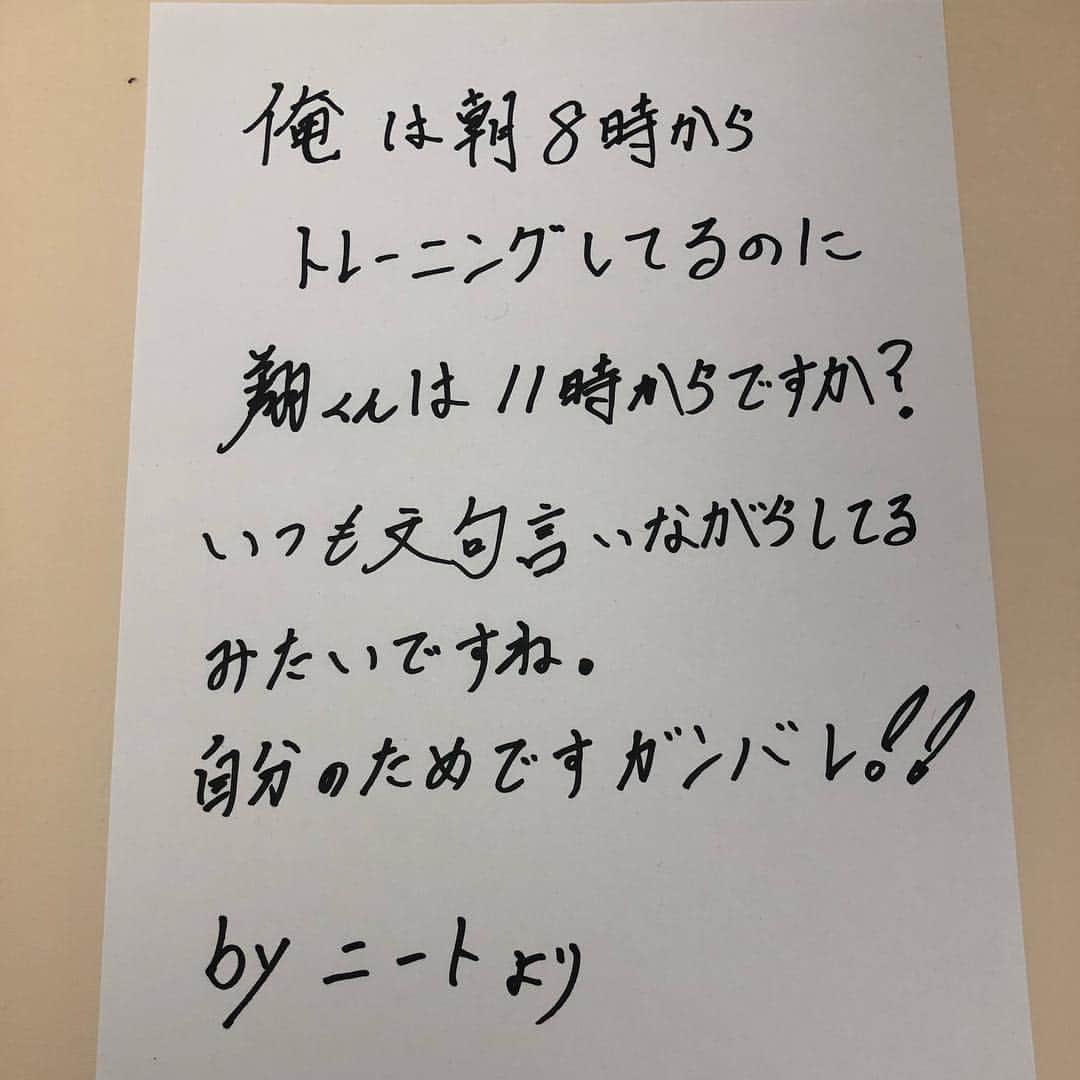 俺は朝8時から
トレーニングしてるのに
翔くんは11時からですか?
いつも文句言いながらしてる
みたいですね。
自分のためですガンバレ!!
by ニートより